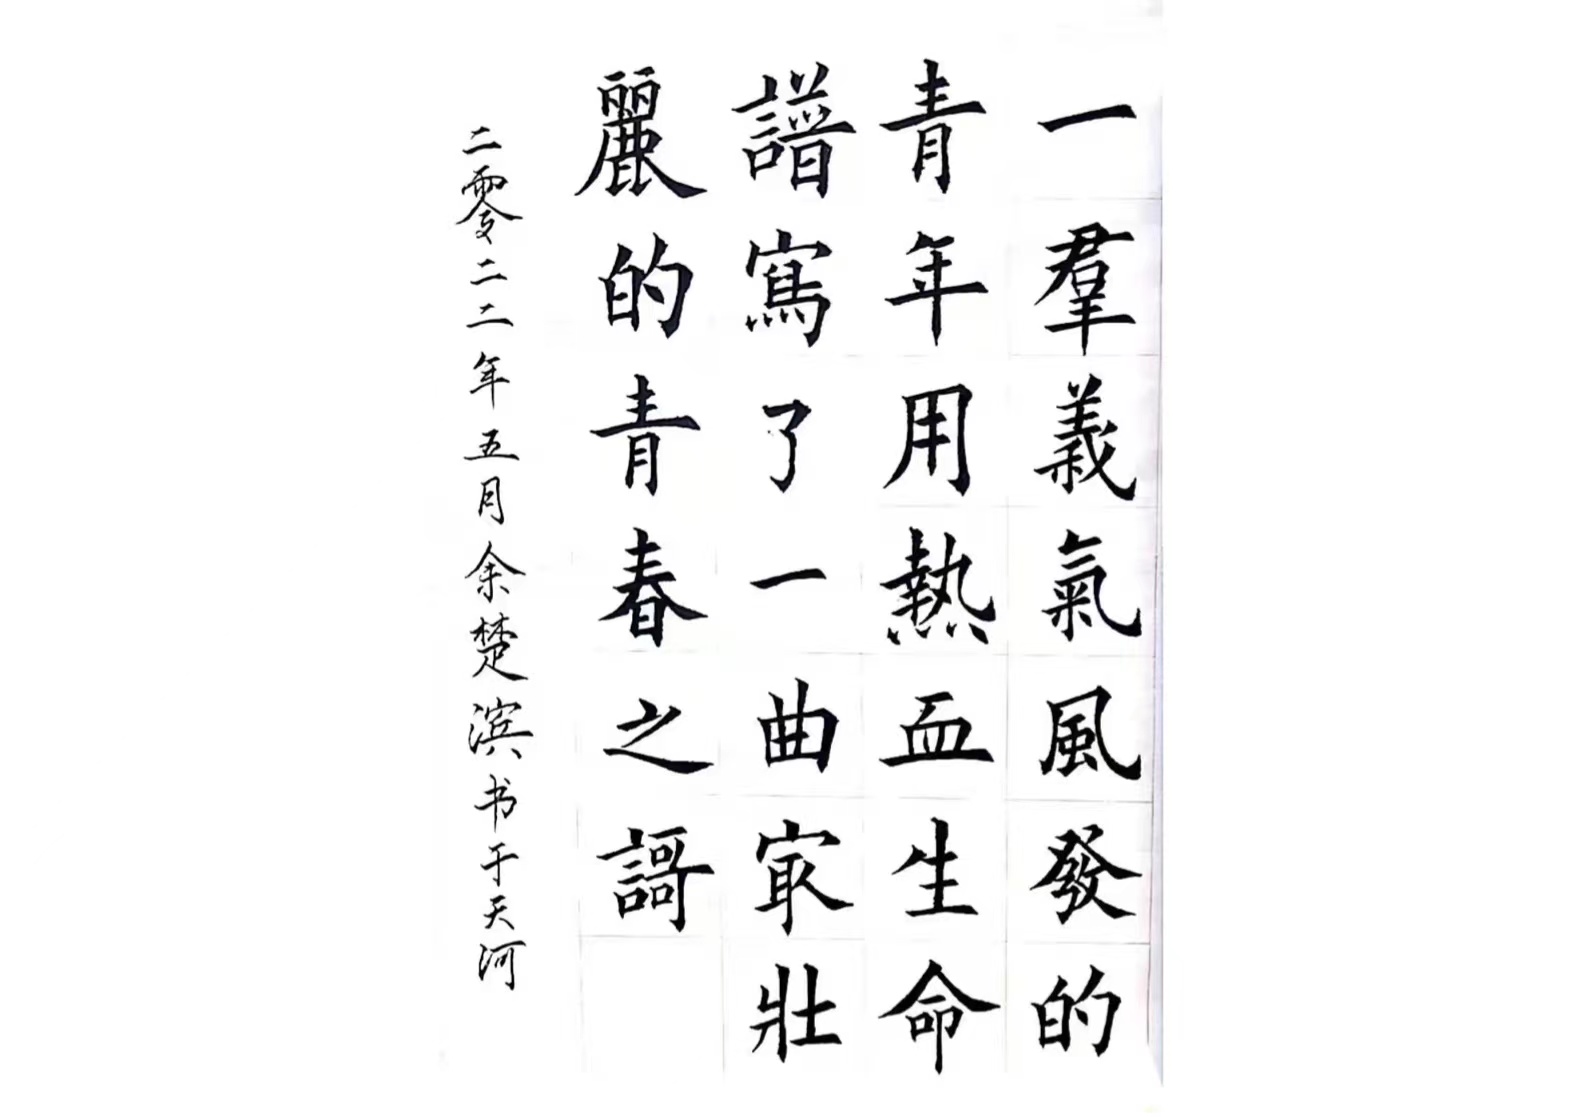 一羣義氣風發的
青年用熱血生命
譜寫了一曲冣壯
麗的青春之謌
二零二二年五月余楚滨书于天河